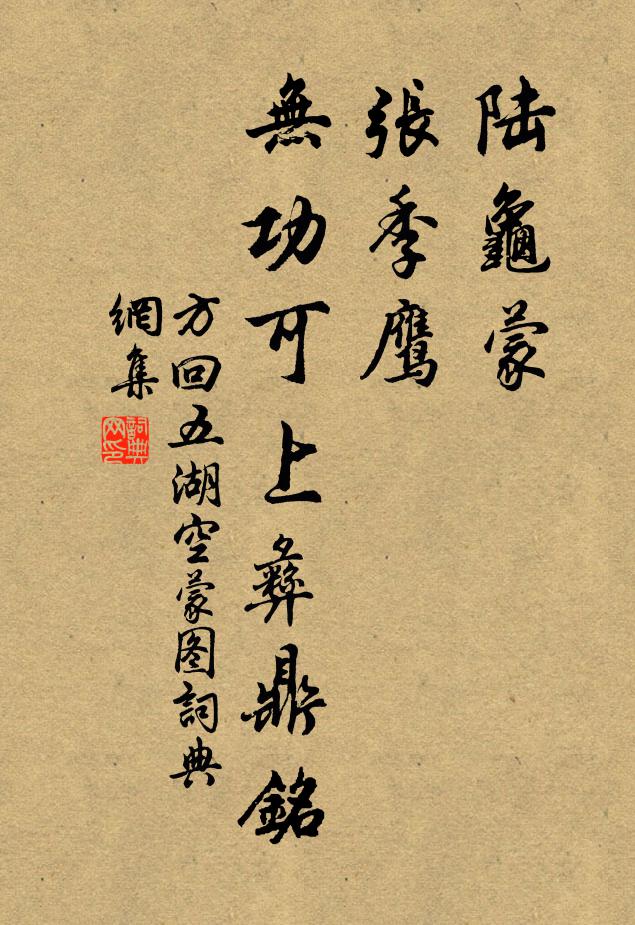 陆龜蒙
張季鹰
無功可上彝鼎銘
方回五湖空蒙图詞典
網集
詞典网印